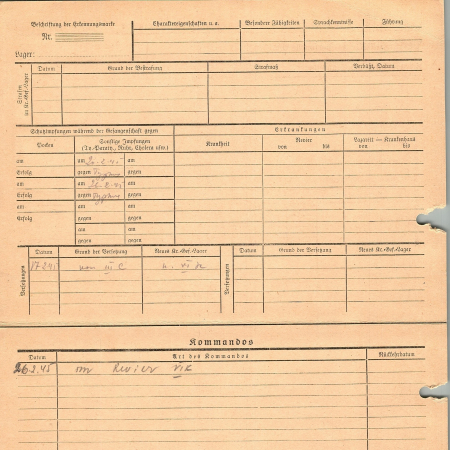 Beschriftung der Erkennungsmarke
Nr.
Lager:
Charaktereigenschaften u. a.
Besondere Fähigkeiten
Sprachkenntnisse
Führung
Strafen im Kr.-Gef.-Lager
Datum
Grund der Bestrafung
Strafmaß
Verbüßt, Datum
Schutzimpfungen während der Gefangenschaft gegen
Erkrankungen
Pocken
Sonstige Impfungen
(Ty.-Paraty., Ruhr, Cholera usw.)
Krankheit
Revier
von bis
Lazarett — Krankenhaus
von bis
am am am
Erfolg gegen gegen
am am am
Erfolg gegen gegen
am am am
Erfolg gegen gegen
am am
gegen gegen
Versetzungen
Datum
Grund der Versetzung
Neues Kr.-Gef.-Lager
Versetzungen
Datum
Grund der Versetzung
Neues Kr.-Gef.-Lager
von III C
Kommandos
Datum
Art des Kommandos
Rückkehrdatum
26.2.45 Revier